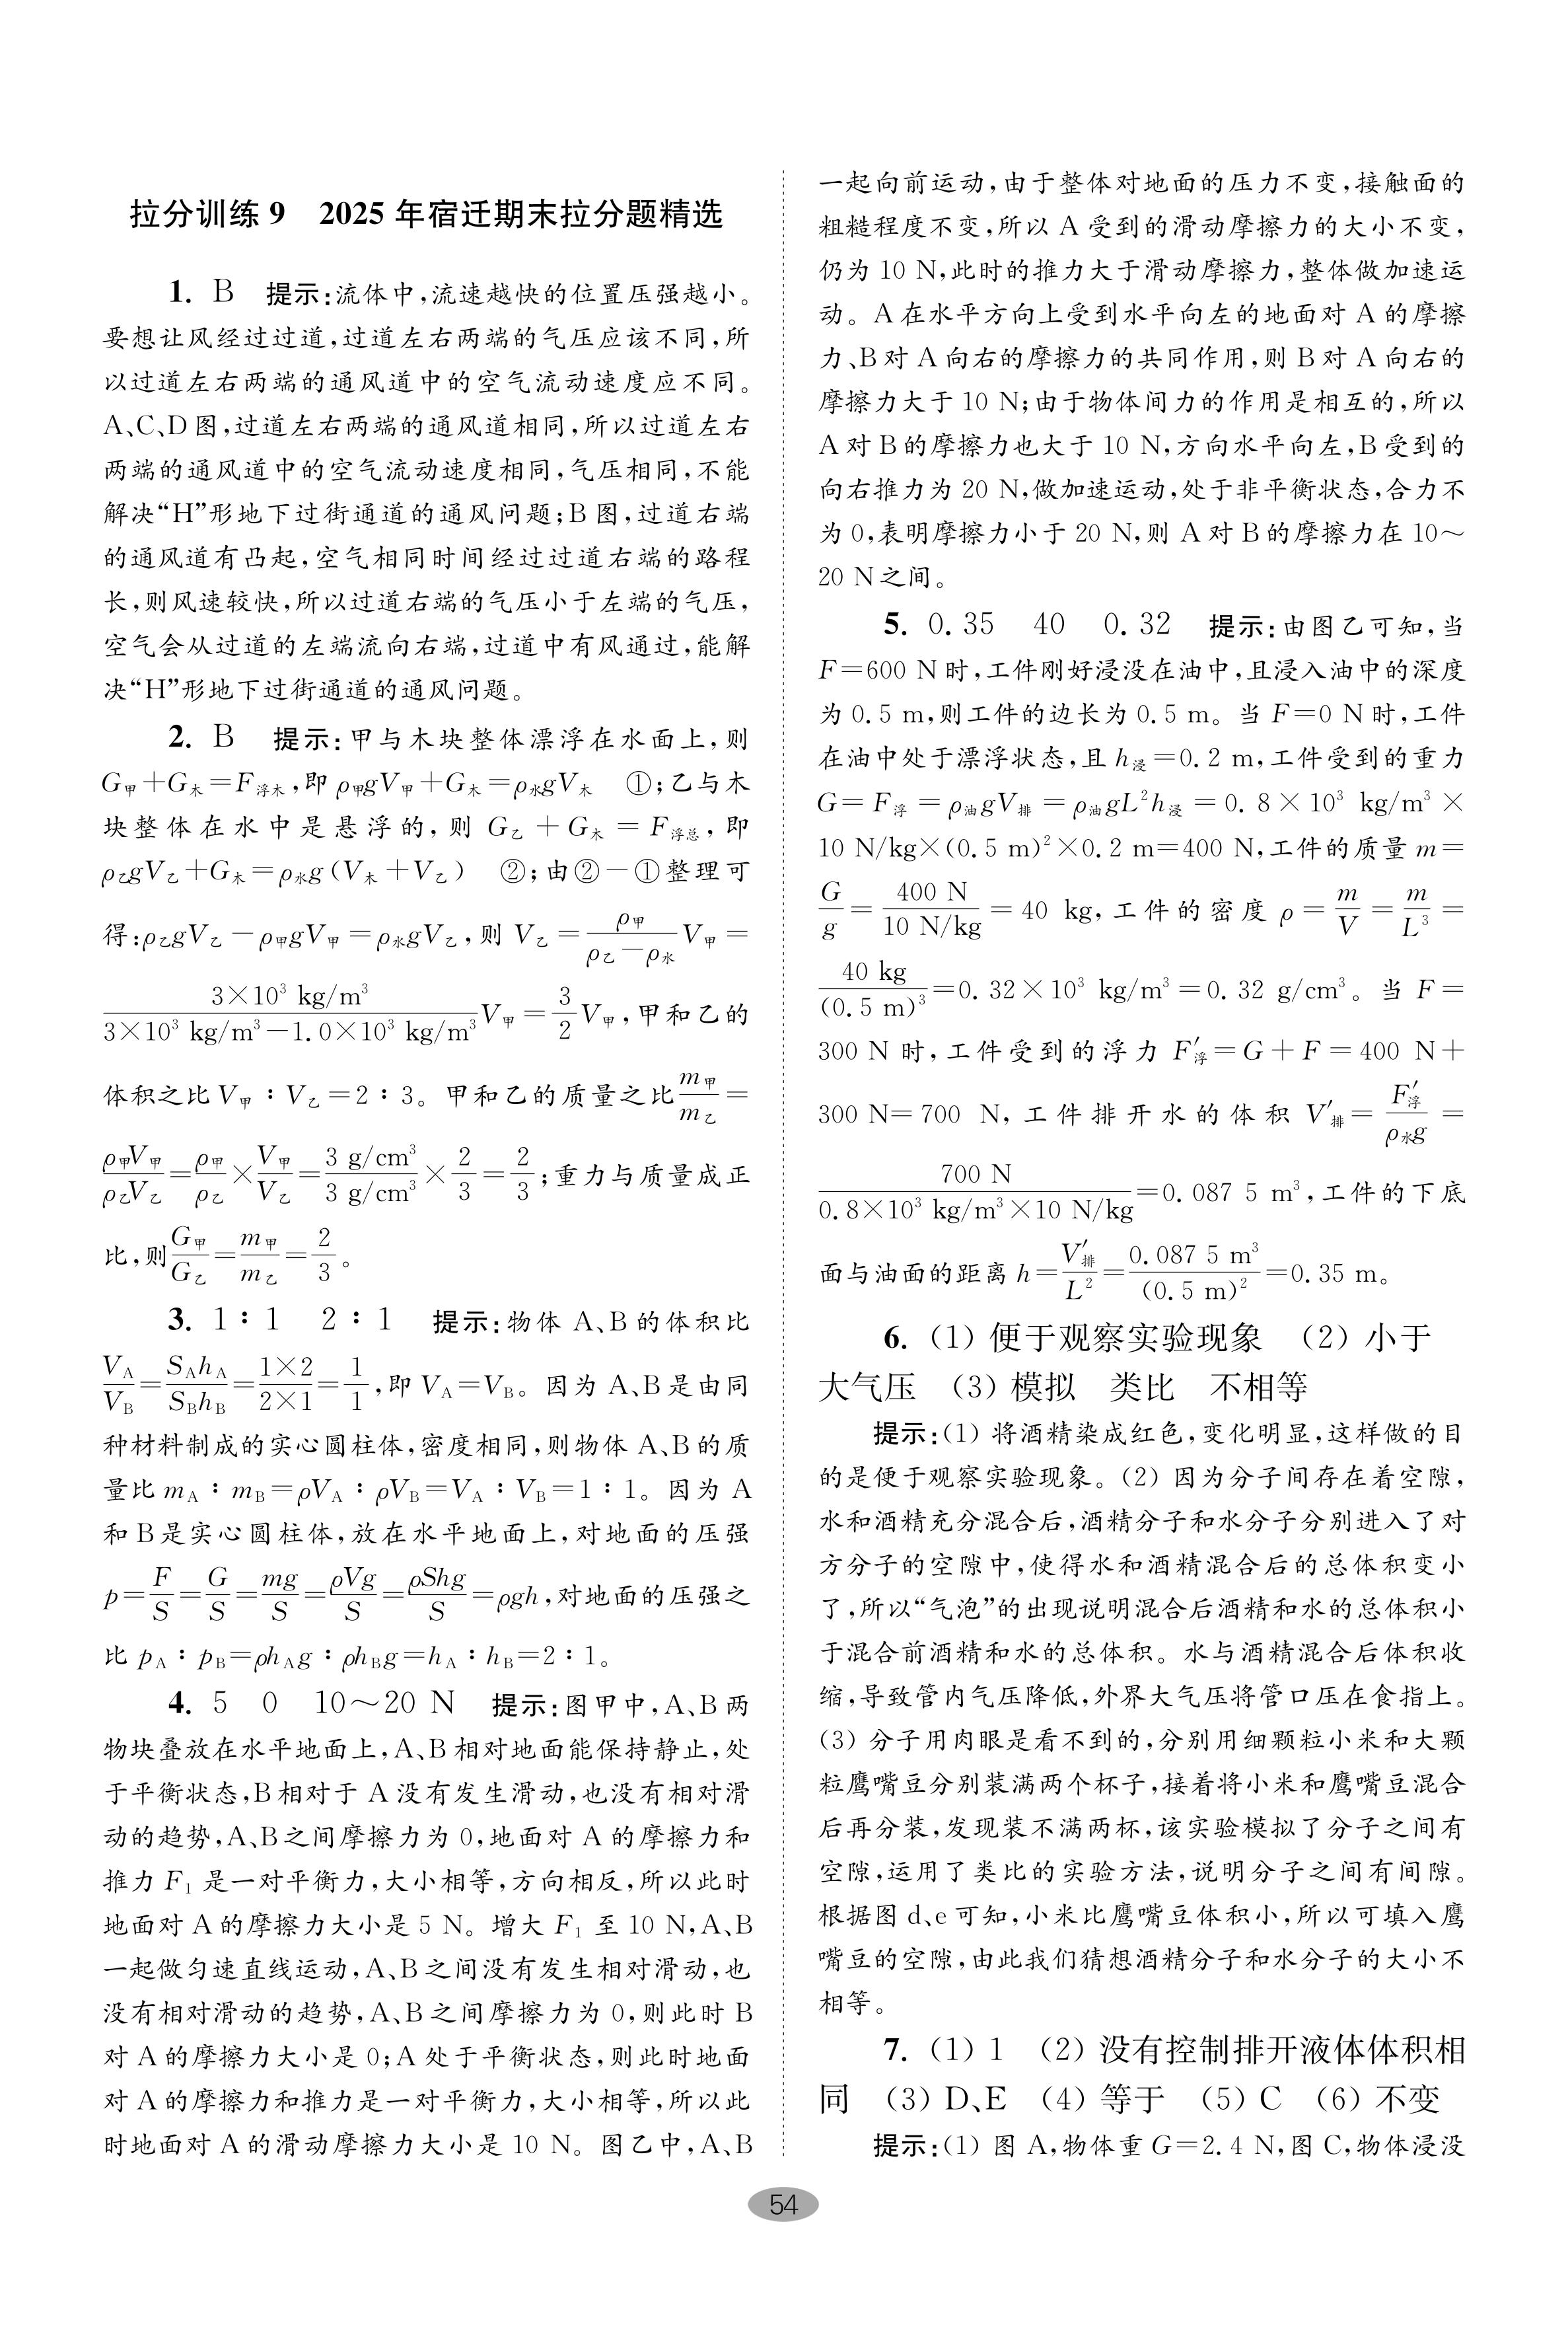 拉分训练9 2025年宿迁期末拉分题精选
1. B 提示:流体中,流速越快的位置压强越小。
要想让风经过过道,过道左右两端的气压应该不同,所
以过道左右两端的通风道中的空气流动速度应不同。
A、C、D图,过道左右两端的通风道相同,所以过道左右
两端的通风道中的空气流动速度相同,气压相同,不能
解决“H”形地下过街通道的通风问题;B图,过道右端
的通风道有凸起,空气相同时间经过过道右端的路程
长,则风速较快,所以过道右端的气压小于左端的气压,
空气会从过道的左端流向右端,过道中有风通过,能解
决“H”形地下过街通道的通风问题。
2. B 提示:甲与木块整体漂浮在水面上,则
G甲+G木=F浮木,即ρ甲gV甲+G木=ρ水gV木 ①;乙与木
块整体在水中是悬浮的,则 G乙+G木=F浮总,即
ρ乙gV乙+G木=ρ水g(V木+V乙) ②;由②-①整理可
得:ρ乙gV乙-ρ甲gV甲=ρ水gV乙,则 V乙=ρ甲/(ρ乙-ρ水)V甲=
3×10³ kg/m³/(3×10³ kg/m³-1.0×10³ kg/m³)V甲=3/2V甲,甲和乙的
体积之比V甲∶V乙=2∶3。甲和乙的质量之比m甲/m乙=
ρ甲V甲/ρ乙V乙=ρ甲/ρ乙×V甲/V乙=3 g/cm³/3 g/cm³×2/3=2/3;重力与质量成正
比,则G甲/G乙=m甲/m乙=2/3。
3. 1∶1 2∶1 提示:物体A、B的体积比
V_A/V_B=S_Ah_A/S_Bh_B=1×2/2×1=1/1,即V_A=V_B。因为A、B是由同
种材料制成的实心圆柱体,密度相同,则物体A、B的质
量比m_A∶m_B=ρV_A∶ρV_B=V_A∶V_B=1∶1。因为A
和B是实心圆柱体,放在水平地面上,对地面的压强
p=F/S=G/S=mg/S=ρVg/S=ρShg/S=ρgh,对地面的压强之
比p_A∶p_B=ρh_Ag∶ρh_Bg=h_A∶h_B=2∶1。
4. 5 0 10～20 N 提示:图甲中,A、B两
物块叠放在水平地面上,A、B相对地面能保持静止,处
于平衡状态,B相对于A没有发生滑动,也没有相对滑
动的趋势,A、B之间摩擦力为0,地面对A的摩擦力和
推力F₁是一对平衡力,大小相等,方向相反,所以此时
地面对A的摩擦力大小是5 N。增大F₁至10 N,A、B
一起做匀速直线运动,A、B之间没有发生相对滑动,也
没有相对滑动的趋势,A、B之间摩擦力为0,则此时B
对A的摩擦力大小是0;A处于平衡状态,则此时地面
对A的摩擦力和推力是一对平衡力,大小相等,所以此
时地面对A的滑动摩擦力大小是10 N。图乙中,A、B
一起向前运动,由于整体对地面的压力不变,接触面的
粗糙程度不变,所以A受到的滑动摩擦力的大小不变,
仍为10 N,此时的推力大于滑动摩擦力,整体做加速运
动。A在水平方向上受到水平向左的地面对A的摩擦
力、B对A向右的摩擦力的共同作用,则B对A向右的
摩擦力大于10 N;由于物体间力的作用是相互的,所以
A对B的摩擦力也大于10 N,方向水平向左,B受到的
向右推力为20 N,做加速运动,处于非平衡状态,合力不
为0,表明摩擦力小于20 N,则A对B的摩擦力在10～
20 N之间。
5. 0.35 40 0.32 提示:由图乙可知,当
F=600 N时,工件刚好浸没在油中,且浸入油中的深度
为0.5 m,则工件的边长为0.5 m。当F=0 N时,工件
在油中处于漂浮状态,且h浸=0.2 m,工件受到的重力
G=F浮=ρ油gV排=ρ油gL²h浸=0.8×10³ kg/m³×
10 N/kg×(0.5 m)²×0.2 m=400 N,工件的质量m=
G/g=400 N/10 N/kg=40 kg,工件的密度ρ=m/V=m/L³=
40 kg/(0.5 m)³=0.32×10³ kg/m³=0.32 g/cm³。当F=
300 N时,工件受到的浮力F′浮=G+F=400 N+
300 N=700 N,工件排开水的体积V′排=F′浮/ρ水g=
700 N/(0.8×10³ kg/m³×10 N/kg)=0.087 5 m³,工件的下底
面与油面的距离h=V′排/L²=0.087 5 m³/(0.5 m)²=0.35 m。
6. (1) 便于观察实验现象 (2) 小于
大气压 (3) 模拟 类比 不相等
提示:(1) 将酒精染成红色,变化明显,这样做的目
的是便于观察实验现象。(2) 因为分子间存在着空隙,
水和酒精充分混合后,酒精分子和水分子分别进入了对
方分子的空隙中,使得水和酒精混合后的总体积变小
了,所以“气泡”的出现说明混合后酒精和水的总体积小
于混合前酒精和水的总体积。水与酒精混合后体积收
缩,导致管内气压降低,外界大气压将管口压在食指上。
(3) 分子用肉眼是看不到的,分别用细颗粒小米和大颗
粒鹰嘴豆分别装满两个杯子,接着将小米和鹰嘴豆混合
后再分装,发现装不满两杯,该实验模拟了分子之间有
空隙,运用了类比的实验方法,说明分子之间有间隙。
根据图d、e可知,小米比鹰嘴豆体积小,所以可填入鹰
嘴豆的空隙,由此我们猜想酒精分子和水分子的大小不
相等。
7. (1) 1 (2) 没有控制排开液体体积相
同 (3) D、E (4) 等于 (5) C (6) 不变
提示:(1) 图A,物体重G=2.4 N,图C,物体浸没
54